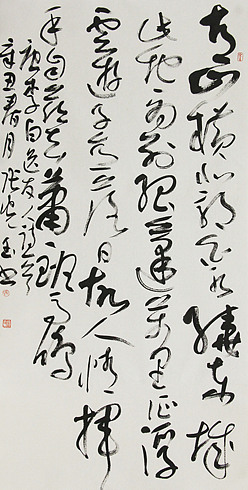 青山橫北郭白水繞東城
此地一為別孤蓬萬里征浮
雲遊子意落日故人情揮
手自茲去蕭蕭班馬鳴
唐李白送友人詩一首
辛丑春月張書